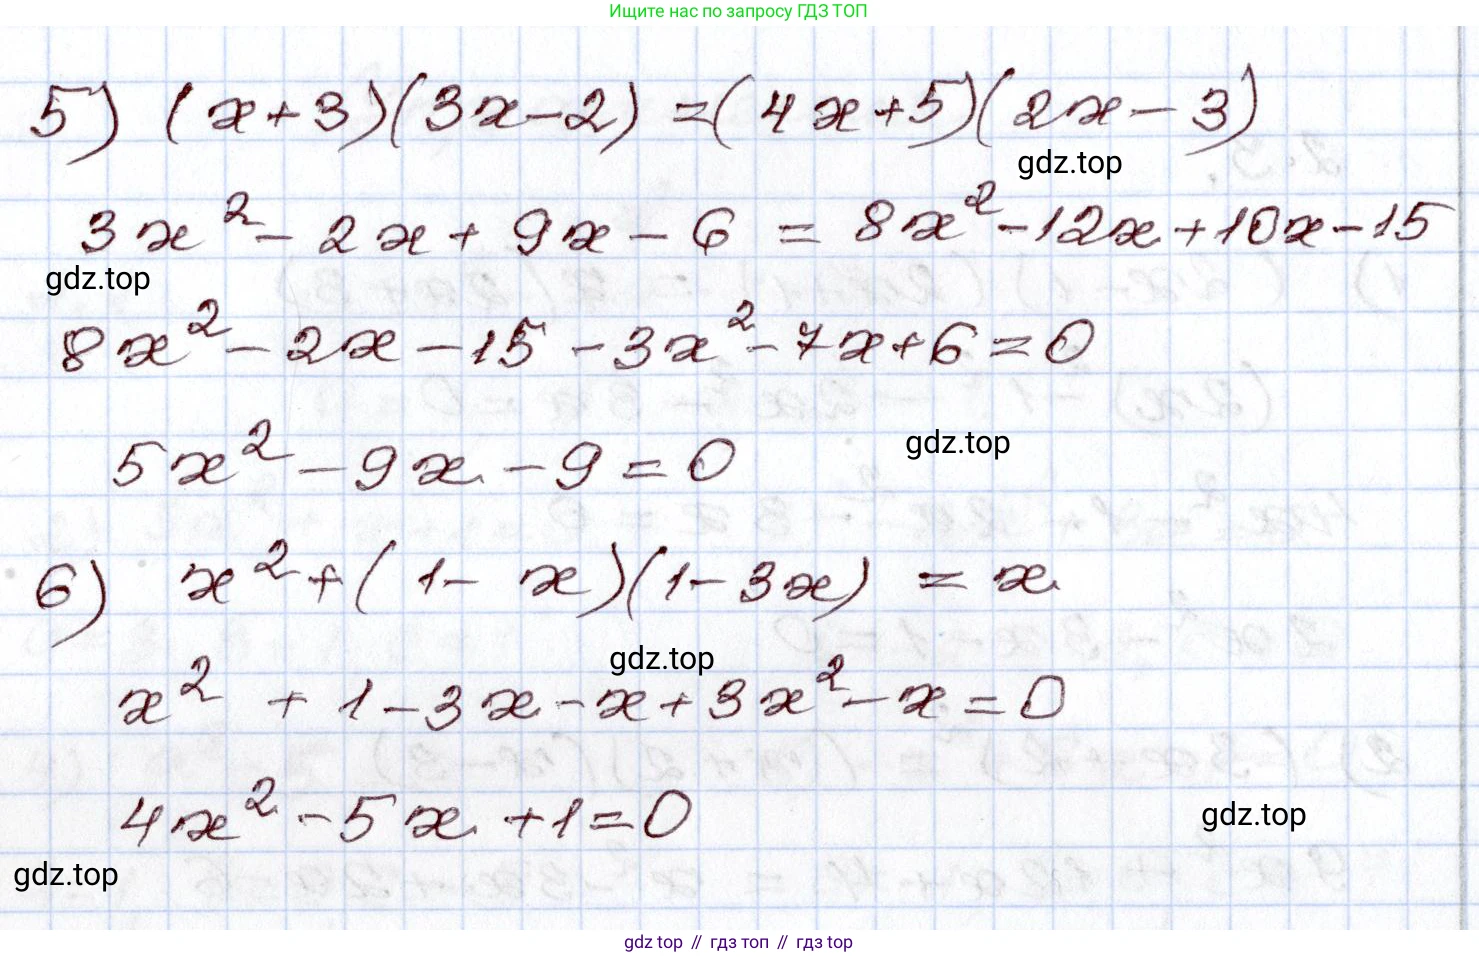 Ищите нас по запросу ГДЗ ТОП
5) (x+3)(3x-2) =(4x+5)(2x-3)
gdz.top
3x² - 2x + 9x - 6 = 8x² -12x+10x-15
gdz.top
8x² - 2x - 15 - 3x² - 7x+6 = 0
5x² - 9x - 9 = 0
gdz.top
6) x² + (1- x)(1-3x) = x
gdz.top
x² + 1 - 3x - x + 3x² - x = 0
4x² - 5x +1=0
gdz.top
gdz.top
gdz top // гдз топ // гдз top